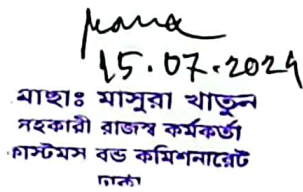 15.07.2024
মোছাঃ মাসুরা খাতুন
সহকারী রাজস্ব কর্মকর্তা
কাস্টমস বন্ড কমিশনারেট
ঢাকা